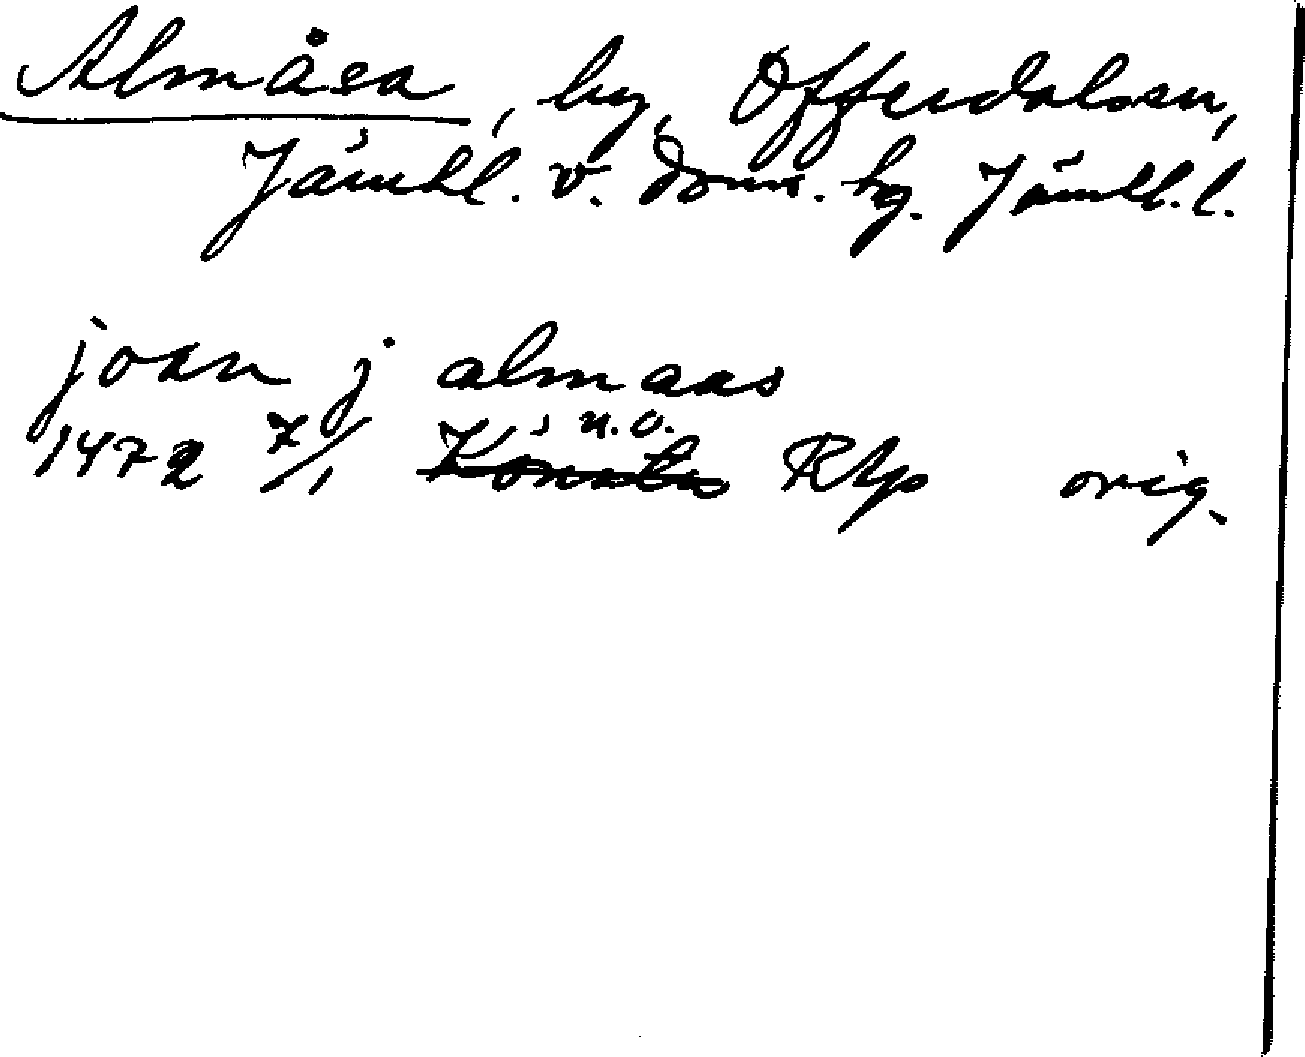 Almåsa, by, Offerdals sn,
Jämtl. v. doms. hg. Jämtl. l.
joan j almaas
n.o.
1472 7/1 Rap orig.